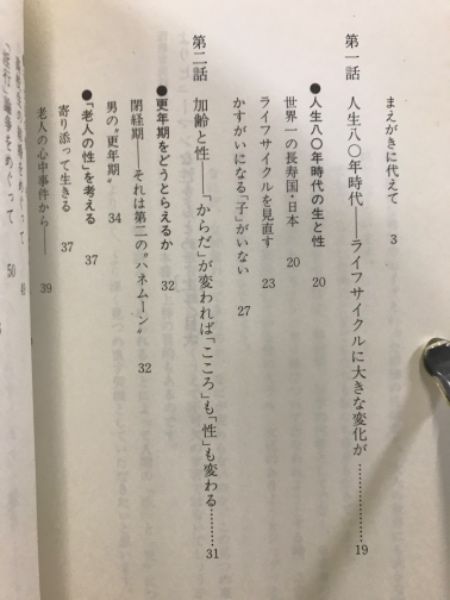 まえがきに代えて 3
第一話 人生八〇年時代──ライフサイクルに大きな変化が…………… 19
●人生八〇年時代の生と性 20
世界一の長寿国・日本 20
ライフサイクルを見直す 23
かすがいになる「子」がいない 27
第二話 加齢と性──「からだ」が変われば「こころ」も「性」も変わる……… 31
●更年期をどうとらえるか 32
閉経期──それは第二の〝ハネムーン〟 32
男の〝更年期〟 34
●「老人の性」を考える 37
寄り添って生きる 37
老人の心中事件から── 39
をめぐって 49
をめぐって 50